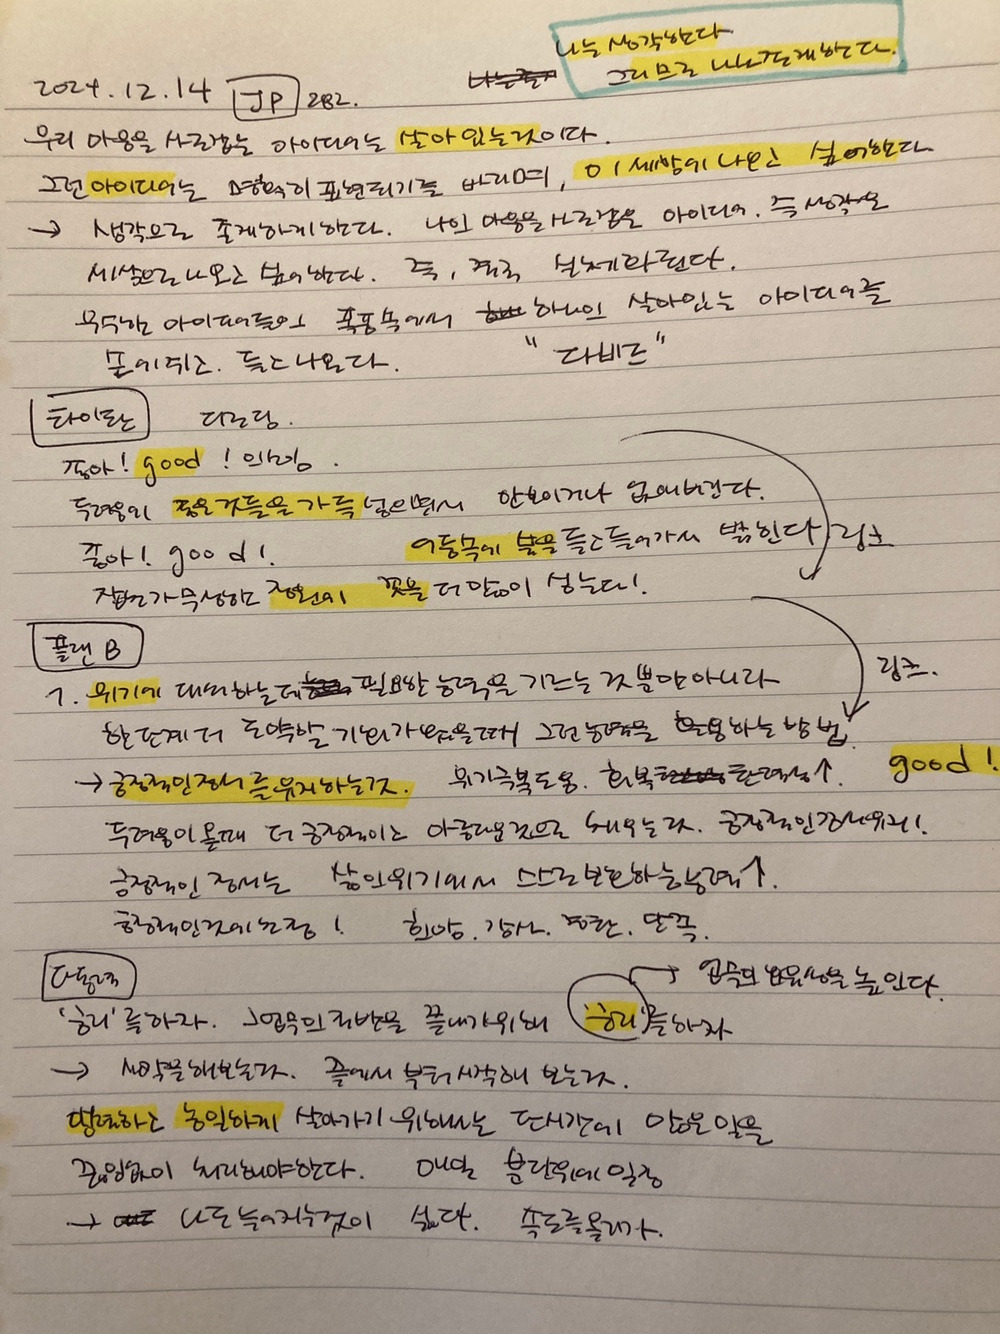 나는 생각한다
그러므로 나는 존재한다.
2024.12.14 JP 282.
우리 마음을 사로잡는 아이디어는 살아있는 것이다.
그런 아이디어는 명확히 표현되기를 바라며, 이 세상에 나오고 싶어한다
→ 생각으로 존재하게 한다. 나의 마음을 사로잡은 아이디어. 즉 생각은
세상으로 나오고 싶어한다. 즉, 결국 실체화된다.
무수한 아이디어들의 폭풍속에서 하나의 살아있는 아이디어를
손에쥐고. 들고나온다. "다비드"
타이탄
좋아! good! 의
두려움의 좋은것들을 가득 넣으면서 안보이거나 없애버린다.
좋아! good! 어둠속에 빛을 들고들어가서 밝힌다 링크
잡초가 무성한 정원의 꽃을 더 많이 심는다!
플랜 B
1. 위기에 대비하는데 필요한 능력을 기르는 것 뿐만아니라
한단계 더 도약할 기회가 있을때 그런능력을 활용하는 방법. 링크.
→ 긍정적인정서를 유지하는것. 위기극복도움. 회복탄력성↑. good!
두려움이 올때 더 긍정적이고 아름다운것으로 채우는다. 긍정적인정서유지!
긍정적인 정서는 삶의위기에서 스스로보호하는능력↑.
긍정적인것에 초점! 희망. 감사. 평안. 만족.
'승리'를하자. 업무의 절반을 끝내기위해 '승리'를하자
→ 업무의 효율성을 높인다.
→ 시작을해보는다. 끝에서 부터시작해 보는다.
강력하고 농밀하게 살아가기 위해서는 단시간에 많은 일을
끊임없이 처리해야한다. 매일 분단위에 일정
→ 나는 늦어지는것이 싫다. 속도를올리자.